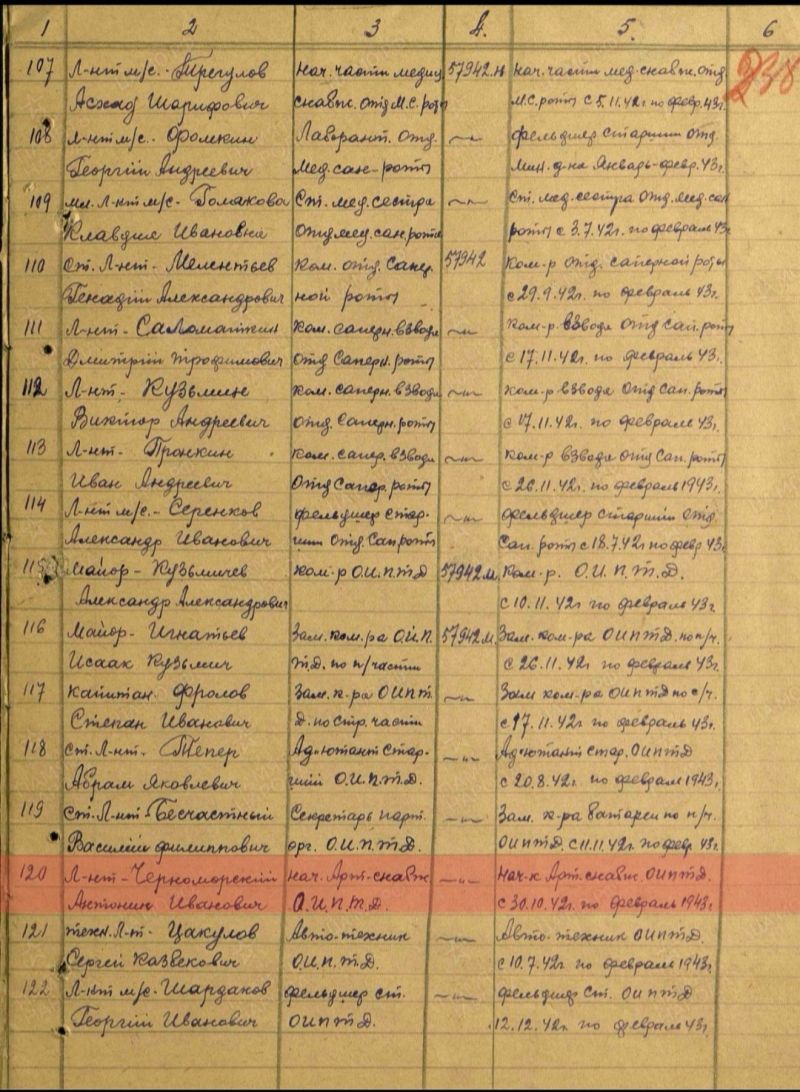 1 2 3 4. 5. 6
107 Л-нт м/с. - Трегулов Нач. части медиц 57942.м Нач. части мед. снабж. отд 238
Асхад Шарифович снабж. отд М.С. роты М.С. роты с 5.11.42г по февр. 43г.
108 Л-нт м/с - Фомкин Лаборант. отд. —"— фельдшер старший отд
Георгий Андреевич Мед. сан-роты Мин. д-на Январь-февр. 43г.
109 мл. Л-нт м/с - Ст. мед. сестра —"— Ст. мед. сестра отд. мед. сан
Клавдия Ивановна отд мед. сан. роты роты с 3.7.42г. по февраль 43г
110 Ст. Л-нт - Мелентьев Ком. отд. Сапер. 57942 Ком-р отд. саперной роты
Генадий Александрович ной роты с 29.9.42г. по февраль 43г.
111 Л-нт - Саломаткин Ком. саперн. взвода —"— Ком-р. взвода отд сап. роты
Дмитрий Трофимович отд Саперн. роты с 17.11.42г. по февраль 43г.
112 Л-нт - Кузьмин Ком. саперн. взвода —"— Ком-р взвода отд Сап. роты
Виктор Андреевич отд. Саперн. роты с 17.11.42г. по февраль 43г.
113 Л-нт - Пронкин Ком. сапер. взвода —"— Ком-р взвода отд Сап. роты
Иван Андреевич отд Сапер. роты с 26.11.42г. по февраль 1943г.
114 Л-нт м/с. - Серенков фельдшер стар- —"— фельдшер старший отд.
Александр Иванович ший отд. Сап роты Сап. роты с 18.7.42г по февр 43г
115 Майор - Кузьмичев Ком-р О.И.П.Т.Д 57942.м. Ком-р. О.И.П.Т.Д.
Александр Александрович с 10.11.42г по февраль 43г
116 Майор - Игнатьев Зам. ком-ра О.И.П. 57942м. Зам. ком-ра ОИПТД. по п/ч.
Исаак Кузьмич Т.Д. по п/части с 26.11.42г по февраль 43г.
117 Капитан. Фролов Зам. к-ра ОИПТ. —"— Зам ком-ра ОИПТД по с/ч.
Степан Иванович Д. по стр. части с 17.11.42г по февраль 43г.
118 Ст. Л-нт - Тепер Ад"ютант стар- —"— Ад"ютант стар. ОИПТД
Абрам Яковлевич ший О.И.П.Т.Д. с 20.8.42г. по февраль 1943г.
119 Ст. Л-нт - Бесчастный Секретарь парт. —"— Зам. к-ра батареи по п/ч.
Василий филиппович орг. О.И.П.Т.Д. ОИПТД. с 11.11.42г. по февр. 43г.
120 Л-нт - Черноморский Нач. Арт-снабж. —"— Нач-к Арт. снабж. ОИПТД.
Антонин Иванович О.И.П.Т.Д. с 30.10.42г. по февраль 1943г.
121 техн. Л-т - Цакулов Авто-техник —"— Авто-техник ОИПТД.
Сергей Казбекович О.И.П.Т.Д. с 10.7.42г по февраль 1943г.
122 Л-нт м/с - Шардаков фельдшер ст. —"— фельдшер Ст. ОИПТД
Георгий Иванович ОИПТД. 12.12.42г. по февраль 43г.